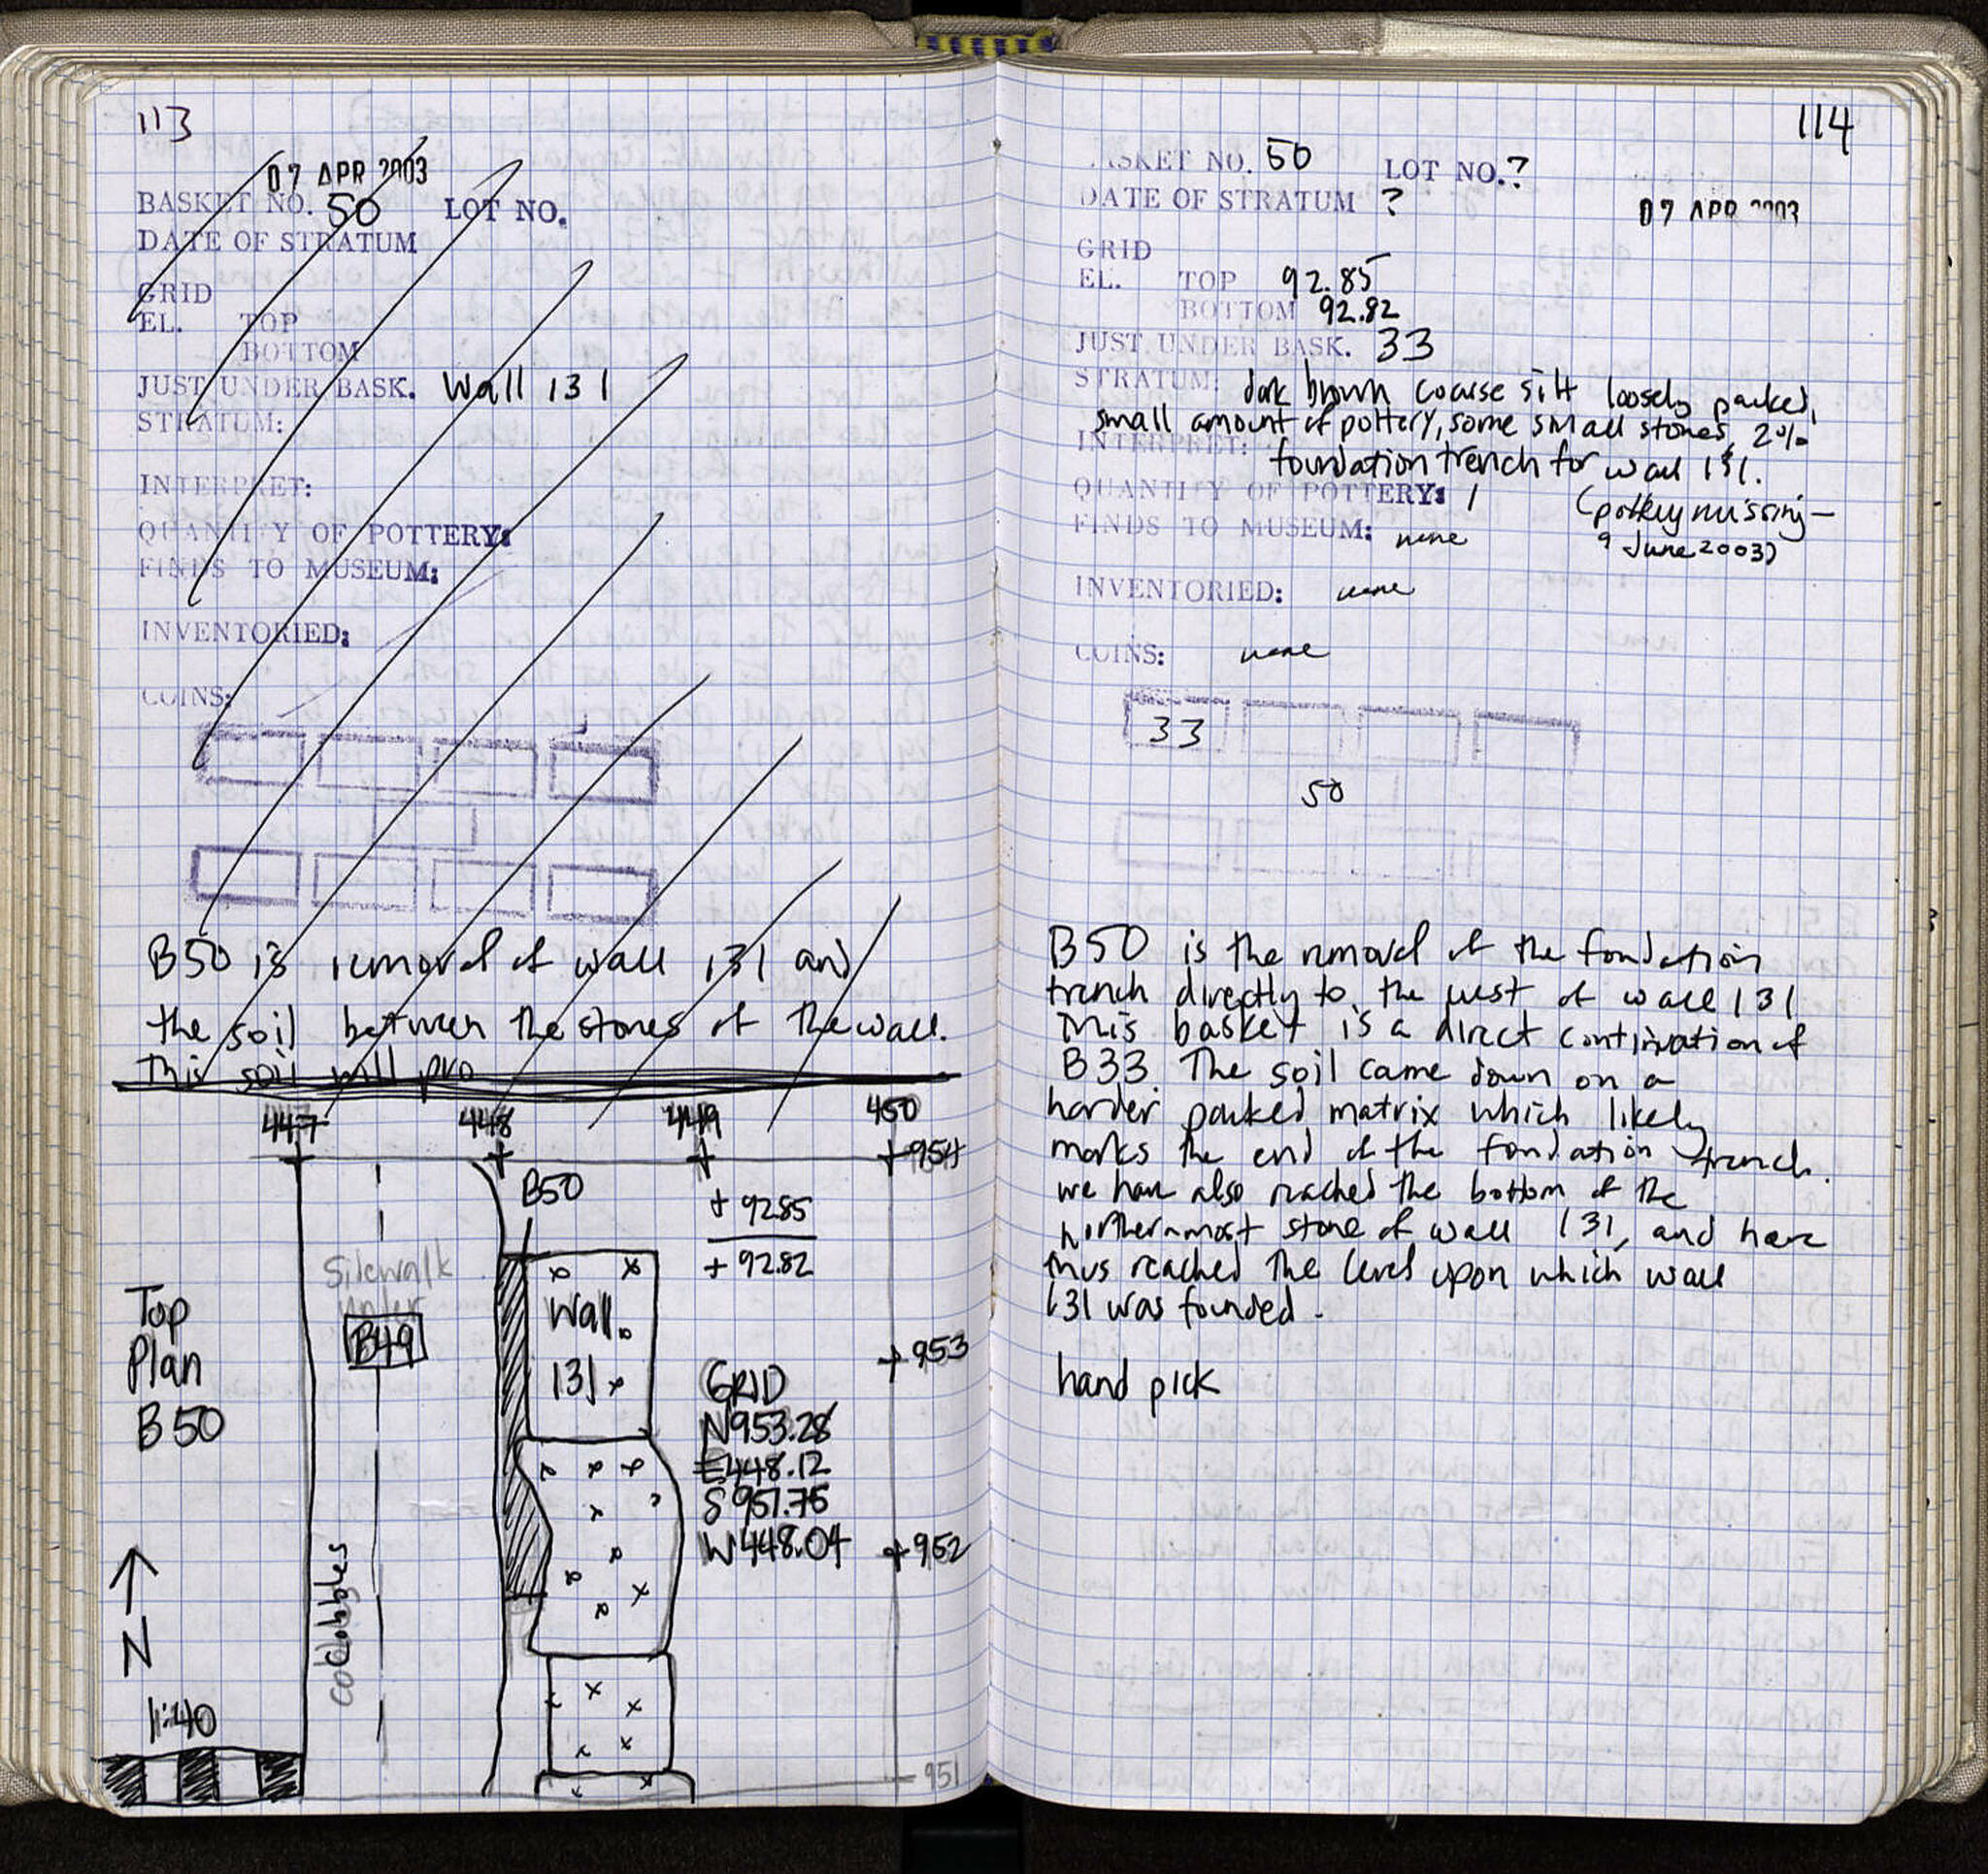 113
07 APR 2003
BASKET NO. 50 LOT NO.
DATE OF STRATUM
GRID
EL. TOP
BOTTOM
JUST UNDER BASK. Wall 131
STRATUM:
INTERPRET:
QUANTITY OF POTTERY:
FINDS TO MUSEUM:
INVENTORIED:
COINS:
B50 is removal of wall 131 and
the soil between the stones of the wall.
This soil will pro
447 448 449 450
954
B50
+ 92.85
+ 92.82
Sidewalk
under
B49
Wall
131
Top
Plan
B50
953
GRID
N953.28
E448.12
S951.75
W448.04
952
Cobbles
N
1:40
951
114
BASKET NO. 50 LOT NO.?
DATE OF STRATUM ?
07 APR 2003
GRID
EL. TOP 92.85
BOTTOM 92.82
JUST UNDER BASK. 33
STRATUM: dark brown coarse silt loosely packed,
small amount of pottery, some small stones, 2%
INTERPRET: foundation trench for wall 131.
QUANTITY OF POTTERY: 1 (pottery missing—
9 June 2003)
FINDS TO MUSEUM: none
INVENTORIED: none
COINS: none
33
50
B50 is the removal of the foundation
trench directly to the west of wall 131
This basket is a direct continuation of
B33. The soil came down on a
harder packed matrix which likely
marks the end of the foundation trench.
we have also reached the bottom of the
northernmost stone of wall 131, and have
thus reached the level upon which wall
131 was founded.
hand pick